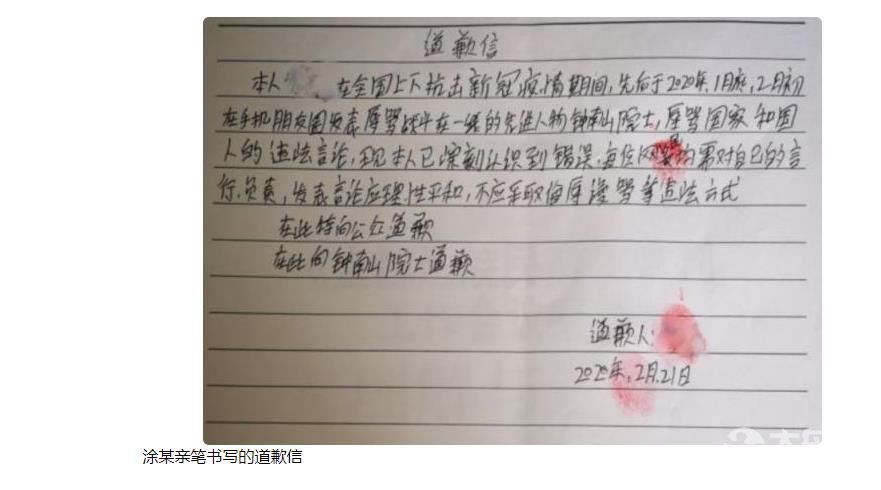 道歉信
本人 在全国上下抗击新冠疫情期间,先后于2020年.1月底,2月初
在手机朋友圈发表辱骂战斗在一线的先进人物钟南山院士,辱骂国家和国
人的违法言论,现本人已深刻认识到错误.每位网民均需对自己的言
行.负责,发表言论应理性平和,不应采取侮辱谩骂等违法方式
在此特向公众道歉
在此向钟南山院士道歉
道歉人:
2020年,2月.21日
涂某亲笔书写的道歉信